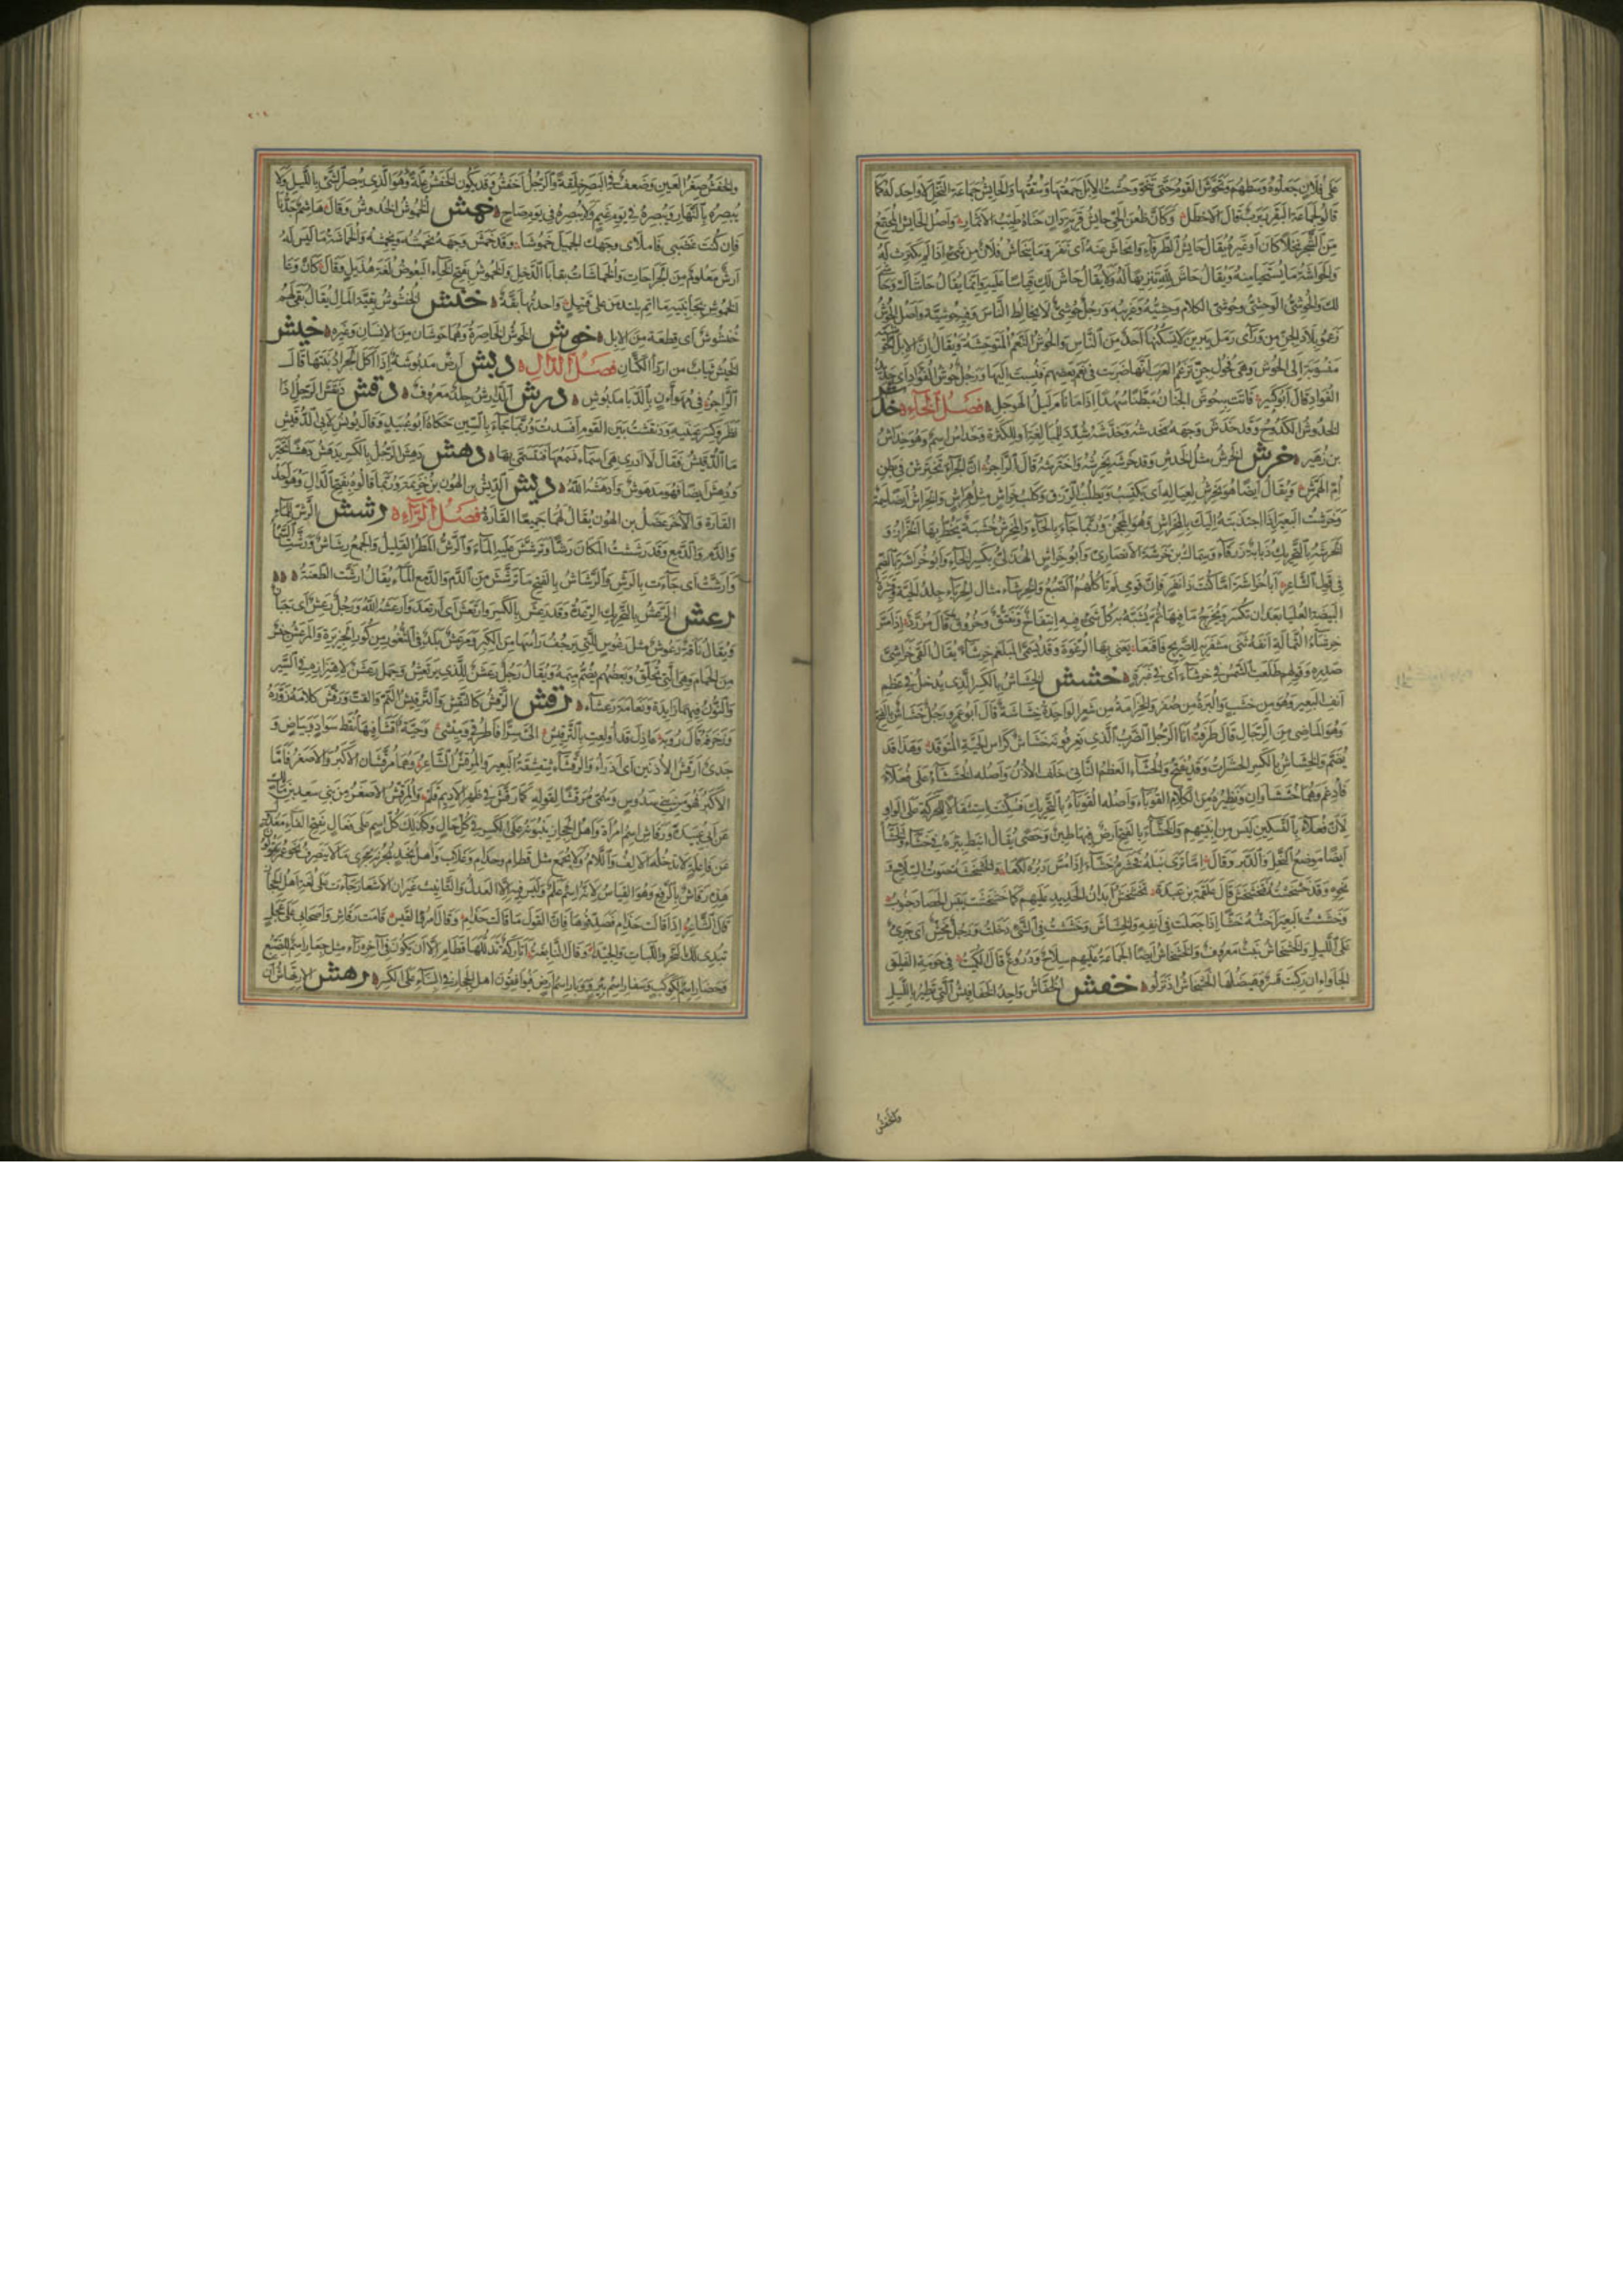 على فلان جعلوه وسطهم وتحوش القوم حتى تنحو وحشت الإبل جمعتها وسقتها والحايش جماعة النخل لا واحد له كما
قالوا لجماعة البقر ربرب قال الأخطل وكأن ظعن الحي حايش قرية دان جناه طيب الأثمار وأصل الحايش المجتمع
من الشجر نخلا كان أو غيره يقال حايش الطرفاء وانحاش عنه أي نفر وما ينحاش فلان من شيء إذا لم يكترث له
والحواشة ما يستحيا منه ويقال حاش لله تنزيها له ولا يقال حاش لك قياسا عليه وإنما يقال حاشاك وحاشا
لك والحوشي الوحشي وحوشي الكلام وحشيه وغريبه ورجل حوشي لا يخالط الناس وفيه حوشية وأصل الحوش
زعموا بلاد الجن من وراء رمل يبرين لا يسكنها أحد من الناس والحوش النعم المتوحشة ويقال إن الإبل الحوشية
منسوبة إلى الحوش وهي فحول جن تزعم العرب أنها ضربت في نعم بعضهم فنسبت إليها ورجل حوش الفؤاد أي حديد
الفؤاد قال أبو كبير فأتت به حوش الجنان مبطنا سهدا إذا ما نام ليل الهوجل فصل الخاء خدش
الخدوش الكدوح وقد خدش وجهه يخدشه وخدشه شدد للمبالغة أو للكثرة وخداش اسم وهو خداش
بن زهير خرش الخرش مثل الخدش وقد خرشه يخرشه واخترشه قال الراجز إن الجراء تخترش في بطن
أم الهمرش ويقال أيضا هو يخرش لعياله أي يكتسب ويطلب الرزق وكلب خراش مثل هراش والخراش أيضا سمة
وخرشت البعير إذا اجتذبته إليك بالمخراش وهو المحجن وربما جاء بالحاء والمخرش خشبة يخط بها الخراز و
الخرشة بالتحريك ذبابة زرقاء وسماك بن خرشة الأنصاري وأبو خراش الهذلي بكسر الخاء وأبو خراشة بالضم
في قول الشاعر أبا خراشة أما كنت ذا نفر فإن قومي لم تأكلهم الضبع والخرشاء مثال الحرباء جلد الحية وقشرة
البيضة العليا بعد أن تكسر ويخرج ما فيها ثم يشبه به كل شيء فيه انتفاخ وتفتق وخروق قال مزرد إذا مس
خرشاء الثمالة أنفه ثنى مشفريه للصريح فأقنعا يعني بها الرغوة وقد يسمى البلغم خرشاء يقال ألقى خراشي
صدره وقولهم طلعت الشمس في خرشاء أي في غبرة خشش الخشاش بالكسر الذي يدخل في عظم
أنف البعير وهو من خشب والبرة من صفر والخزامة من شعر الواحدة خشاشة قال أبو عمرو رجل خشاش بالفتح
وهو الماضي من الرجال قال طرفة أنا الرجل الضرب الذي تعرفونه خشاش كرأس الحية المتوقد وهذا قد
يضم والخشاش بالكسر الحشرات وقد يفتح والخشاء العظم الناتئ خلف الأذن وأصله الخششاء على فعلاء
فأدغم وهما خششاوان ونظيره من الكلام القوباء وأصله القوباء بالتحريك فسكنت استثقالا للحركة على الواو
لأن فعلاء بالتسكين ليس من أبنيتهم والخشاء بالفتح أرض فيها طين وحصى يقال أنبط بئره في خشاء والخشاء
أيضا موضع النحل والدبر وقال إما ترى نبله فخشرم خشاء إذا مس دبره لكعا والخشخشة صوت السلاح و
نحوه وقد خشخشته فتخشخش قال علقمة بن عبدة تخشخش أبدان الحديد عليهم كما خشخشت يبس الحصاد جنوب
وخششت البعير أخشه خشا إذا جعلت في أنفه الخشاش وخششت في الشيء دخلت ورجل مخش أي جريء
على الليل والخشخاش نبت معروف والخشخاش أيضا الجماعة عليهم سلاح ودروع قال الكميت في حومة الفيلق
الجأواء إذ ركبت قسر وهيضلها الخشخاش إذ نزلوا خفش الخفاش واحد الخفافيش التي تطير بالليل
والخفش
٢٠٤
والخفش صغر العين وضعف في البصر خلقة والرجل أخفش وقد يكون الخفش علة وهو الذي يبصر الشيء بالليل ولا
يبصره بالنهار ويبصره في يوم غيم ولا يبصره في يوم صاح خمش الخموش الخدوش وقال
فإن كنت غضبى فاملأي وجهك الجميل خموشا وقد خمش وجهه يخمشه ويخمشه والخماشة ما ليس له
أرش معلوم من الجراحات والخماشات بقايا الذحل والخموش بفتح الخاء البعوض لغة هذيل وقال كأن وغا
الخموش بجانبيه مآتم يلتدمن على قتيل واحدتها بقة خنش الخنشوش بقية المال يقال بقي لهم
خنشوش أي قطعة من الإبل خوش الخوش الخاصرة وهما خوشان من الإنسان وغيره خيش
الخيش ثياب من أردإ الكتان فصل الدال دبش أرض مدبوشة إذا أكل الجراد نبتها قال
الراجز في مهوأن بالدبا مدبوش درش الدارش جلد معروف دقش دنقش الرجل إذا
نظر وكسر عينيه ودنقشت بين القوم أفسدت وربما جاء بالسين حكاه أبو عبيد وقال يونس لأبي الدقيش
ما الدقيش فقال لا أدري هي أسماء نسمعها فنتسمى بها دهش دهش الرجل بالكسر يدهش دهشا تحير
ودهش أيضا فهو مدهوش وأدهشه الله ديش الديش بن الهون بن خزيمة وربما قالوه بفتح الدال وهو أحد
القارة والآخر عضل بن الهون يقال لهما جميعا القارة فصل الراء رشش الرش للماء
والدم والدمع وقد رششت المكان رشا وترشش عليه الماء والرش المطر القليل والجمع رشاش ورشت السماء
وأرشت أي جاءت بالرش والرشاش بالفتح ما ترشش من الدم والدمع والماء يقال أرشت الطعنة
رعش الرعش بالتحريك الرعدة وقد رعش بالكسر وارتعش أي ارتعد وأرعشه الله ورجل رعش أي جبان
ويقال ناقة رعوش مثل رعوس للتي يرجف رأسها من الكبر ومرعش بلد في الثغور من كور الجزيرة والمرعش جنس
من الحمام وهي التي تحلق وبعضهم يضم ميمه ويقال رجل رعشن للذي يرتعش وجمل رعشن لاهتزازه في السير
والنون فيهما زايدة ونعامة رعشاء رقش الرقش كالنقش والترقيش النم والقت ورقش كلامه زوره
وزخرفه قال رؤبة عاذل قد أولعت بالترقيش إلي سرا فاطرقي وميشي وحية رقشاء فيها نقط سواد وبياض و
جدي أرقش الأذنين أي أذرأ والرقشاء شقشقة البعير والمرقش الشاعر وهما مرقشان الأكبر والأصغر فأما
الأكبر فهو من بني سدوس وسمي مرقشا لقوله كما رقش في ظهر الأديم قلم والمرقش الأصغر من بني سعد بن مالك
عن أبي عبيدة ورقاش اسم امرأة وأهل الحجاز يبنونه على الكسر في كل حال وكذلك كل اسم على فعال بفتح الفاء معدول
عن فاعلة لا يدخله الألف واللام ولا يجمع مثل قطام وحذام وغلاب وأهل نجد يجرونه مجرى ما لا ينصرف نحو عمر يقولون
هذه رقاش بالرفع وهو القياس لأنه اسم علم وليس فيه إلا العدل والتأنيث غير أن الأشعار جاءت على لغة أهل الحجاز
قال الشاعر إذا قالت حذام فصدقوها فإن القول ما قالت حذام وقال امرؤ القيس قامت رقاش وأصحابي على عجل
تبدي لك النحر واللبات والجيدا وقال النابغة أتاركة تدللها قطام إلا أن يكون في آخره راء مثل جعار اسم للضبع
وحضار اسم لكوكب وسفار اسم بئر ووبار اسم أرض فيوافقون أهل الحجاز في البناء على الكسر رهش الارتهاش أن